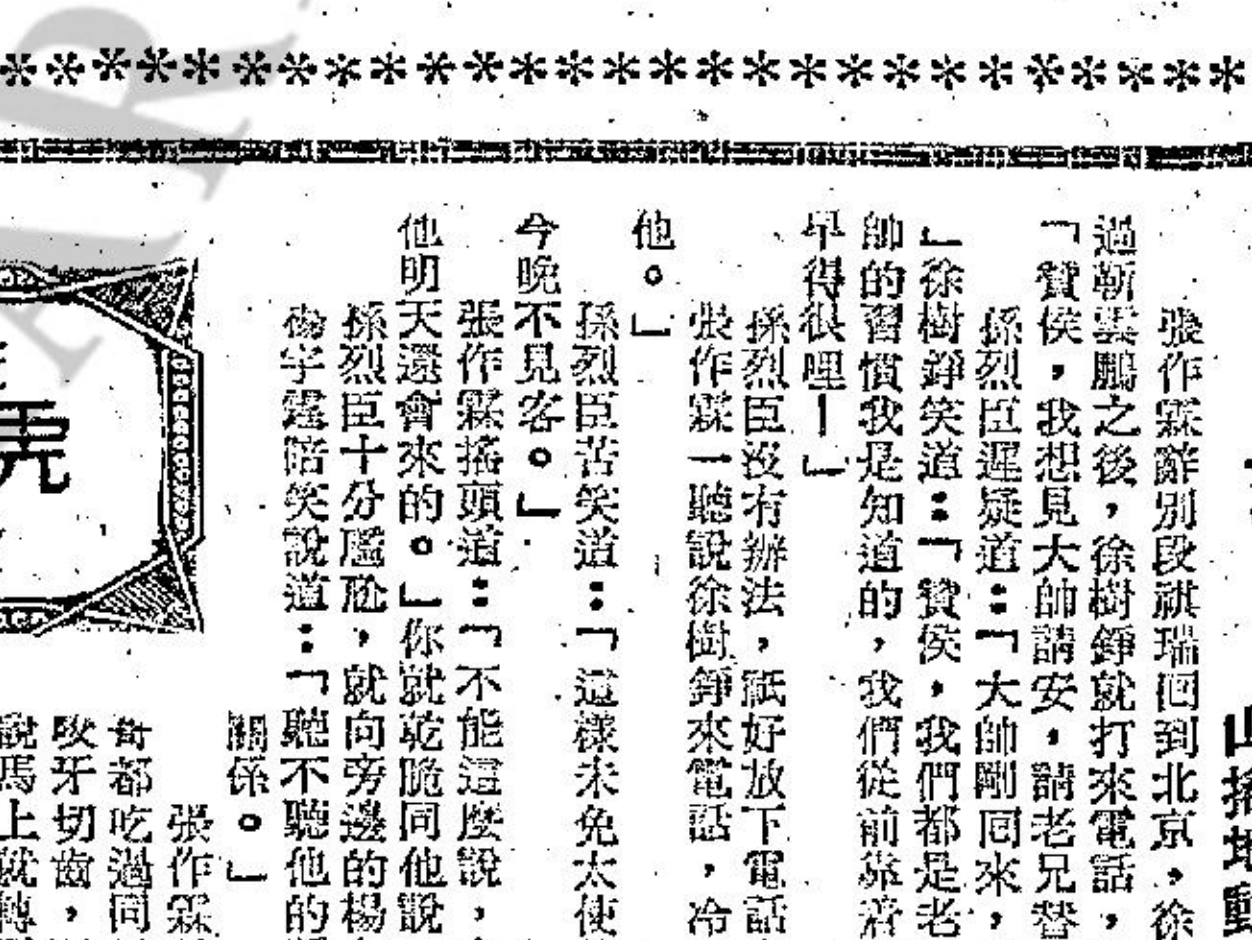 山搖地動
張作霖辭別段祺瑞回到北京,徐
過靳雲鵬之後,徐樹錚就打來電話,
「贊侯,我想見大帥請安,請老兄替
孫烈臣遲疑道:「大帥剛回來,
」徐樹錚笑道:「贊侯,我們都是老
帥的習慣我是知道的,我們從前
早得很哩!」
孫烈臣沒有辦法,祇好放下電話
張作霖一聽說徐樹錚來電話,冷
他。」
孫烈臣苦笑道:「這樣未免太使
今晚不見客。」
張作霖搖頭道:「不能這麼說,
他明天還會來的。」你就乾脆同他說
孫烈臣十分尶尬,就向旁邊的楊
楊宇霆陪笑說道:「聽不聽他的
關係。」
張作霖
都吃過同
咬牙切齒,
說馬上就轉
虎